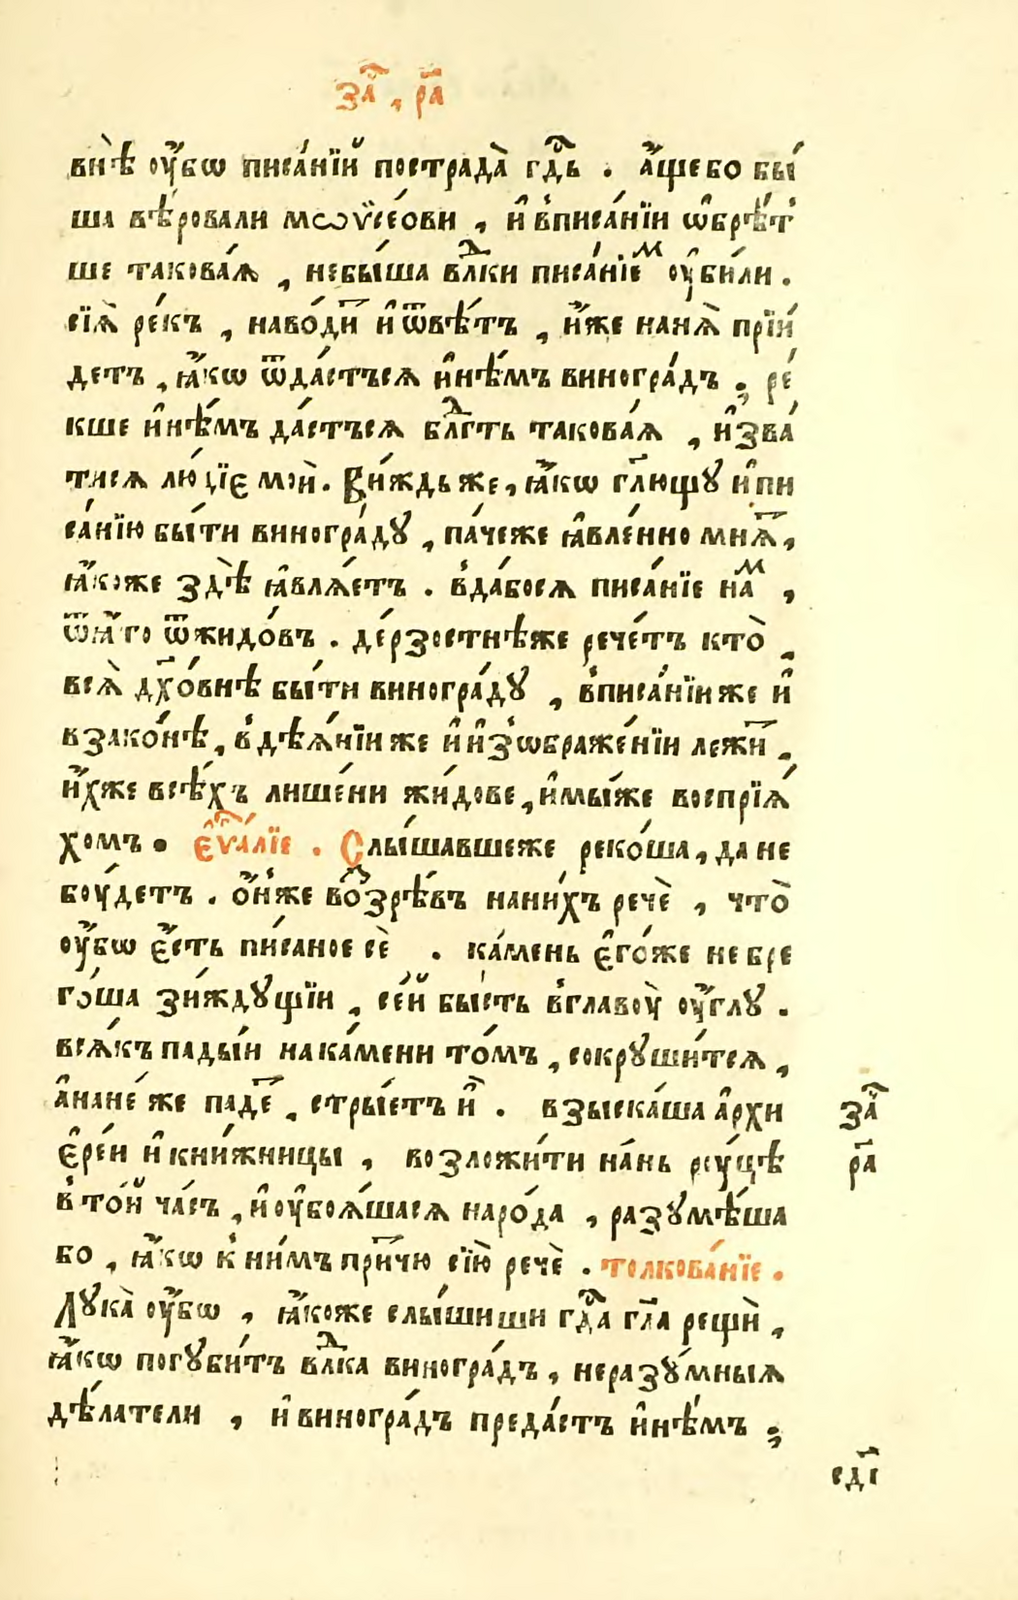 за҃ , р҃а
внѣ ᲂу҆̀бѡ писа́нїй пострада̀ гдⷭ҇ь . а҆́ще бо бы́
ша вѣ́ровали мѡѷсе́ови , и҆ в҆писа́нїи ѡ҆брѣ́т̾
ше такова́ѧ , небы́ша влⷣки писа́нїеⷨ ᲂу҆би́ли .
сїѧ̀ ре́къ , наво́диⷮ и҆ ѿвѣ́тъ , и҆́же нанѧ̀ прїи́
детъ , ꙗ҆́кѡ ѿда́стьсѧ и҆нѣ́мъ виногра́дъ ; ре́
кше и҆нѣ́мъ да́стьсѧ блгⷣть такова́ѧ , и҆зва́
тисѧ лю́дїе мои̑ . Ви́ждь же , ꙗ҆́кѡ гл҃ющꙋ и҆ пи
са́нїю бы́ти виногра́дꙋ , па́чеже ꙗ҆вле́нно мнѧⷮ ,
ꙗ҆́коже здѣ̀ ꙗ҆влѧ́етъ . в҆да́босѧ писа́нїе наⷨ ,
ѿꙗ҆́ го ѿжидо́въ . де́рзостнѣже рече́тъ кто̀ ,
всѧ̀ дх҃о́внѣ бы́ти виногра́дꙋ , в҆писа́нїи же и҆
взако́нѣ , в҆дѣѧ́нїи же и҆ и҆з̾ѡбраже́нїи лежиⷮ ,
и҆́хже всѣ́хъ лише́ни жи́дове , и҆мы́же воспрїѧ́
хомъ . є҆ѵⷢ҇а́лїе . Слы́шавшеже реко́ша , да не
бꙋ́детъ . ѻ҆́н̾же воⷥзрѣ́въ нани́хъ речѐ , что̀
ᲂу҆̀бѡ є҆́сть пи́саное сѐ . ка́мень є҆го́же не бре
го́ша зи́ждꙋщїи , се́й бы́сть в҆главоу̀ ᲂу҆́глꙋ .
всѧ́къ пады́и нака́мени то́мъ , сокрꙋши́тсѧ ,
а҆нане́ же падеⷮ , стры́етъ и҆̀ . взыска́ша а҆рхи
є҆ре́и и҆ кни́жницы , возложи́ти на́нь рꙋ́цѣ
в҆ то́й ча́съ , и҆ ᲂу҆боѧ́шасѧ наро́да , разꙋмѣ́ша
бо , ꙗ҆́кѡ к҆ ни́мъ при́тчю сїю̀ речѐ . толкова́нїе .
Лꙋка̀ ᲂу҆́бѡ , ꙗ҆́коже слы́шиши гдⷭ҇а гл҃а рещѝ ,
ꙗ҆́кѡ погꙋби́тъ влⷣка виногра́дъ , неразꙋ́мныѧ
дѣ́латели , и҆ виногра́дъ преда́стъ и҆нѣ́мъ ;
за҃
р҃а